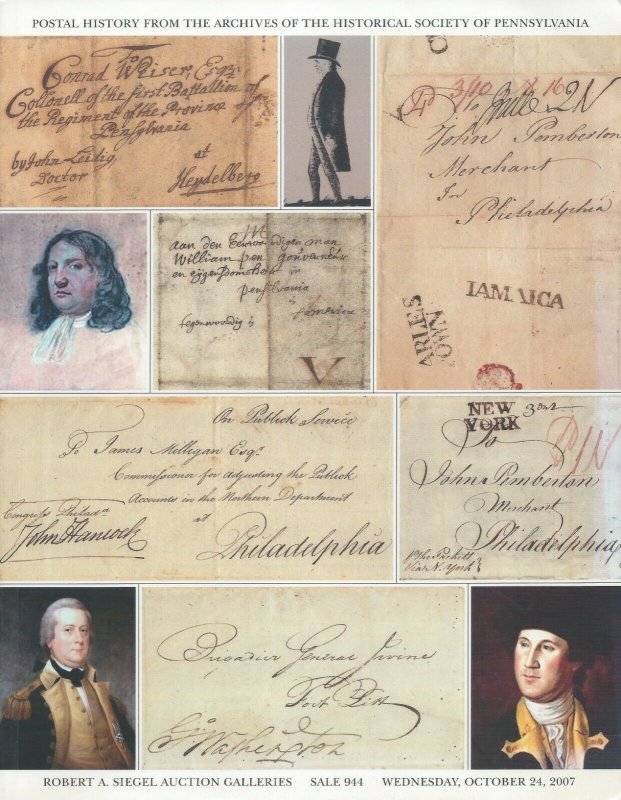 POSTAL HISTORY FROM THE ARCHIVES OF THE HISTORICAL SOCIETY OF PENNSYLVANIA
Conrad Weiser, Esqr:
Collonell of the first Battalion of
the Regiment of the Province of
Pensylvania
at
by John Leidig
Doctor
Heydelberg
3/10
To
2N
John Pemberton
Merchant
In
Philadelphia
JAMAICA
ARLES
OWN
aan den Eerwaardigen man
William pen gouverneur
en eijgendomheer in
pensilvania
in America
tegenwoordig
V
On Publick Service
To James Milligan Esqr.
Commissioner for adjusting the Publick
Accounts in the Northern Department
at
Congress Philada
John Hancock
Philadelphia
NEW
YORK
To
John Pemberton
Merchant
Philadelphia
via N. York
Brigadier General Irvine
Fort Pitt
Go Washington
ROBERT A. SIEGEL AUCTION GALLERIES SALE 944 WEDNESDAY, OCTOBER 24, 2007